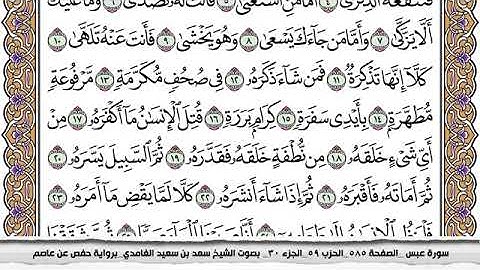 فَتَنفَعَهُ ٱلذِّكْرَىٰٓ ٤ أَمَّا مَنِ ٱسْتَغْنَىٰ ٥ فَأَنتَ لَهُۥ تَصَدَّىٰ ٦ وَمَا عَلَيْكَ
أَلَّا يَزَّكَّىٰ ٧ وَأَمَّا مَن جَآءَكَ يَسْعَىٰ ٨ وَهُوَ يَخْشَىٰ ٩ فَأَنتَ عَنْهُ تَلَهَّىٰ ١٠
كَلَّآ إِنَّهَا تَذْكِرَةٌ ١١ فَمَن شَآءَ ذَكَرَهُۥ ١٢ فِى صُحُفٍ مُّكَرَّمَةٍ ١٣ مَّرْفُوعَةٍ
مُّطَهَّرَةٍۭ ١٤ بِأَيْدِى سَفَرَةٍ ١٥ كِرَامٍۭ بَرَرَةٍ ١٦ قُتِلَ ٱلْإِنسَٰنُ مَآ أَكْفَرَهُۥ ١٧ مِنْ
أَىِّ شَىْءٍ خَلَقَهُۥ ١٨ مِن نُّطْفَةٍ خَلَقَهُۥ فَقَدَّرَهُۥ ١٩ ثُمَّ ٱلسَّبِيلَ يَسَّرَهُۥ ٢٠
ثُمَّ أَمَاتَهُۥ فَأَقْبَرَهُۥ ٢١ ثُمَّ إِذَا شَآءَ أَنشَرَهُۥ ٢٢ كَلَّا لَمَّا يَقْضِ مَآ أَمَرَهُۥ ٢٣
سورة عبس _الصفحة ٥٨٥_ الحزب ٥٩_ الجزء ٣٠_ بصوت الشيخ سعد بن سعيد الغامدي_ برواية حفص عن عاصم